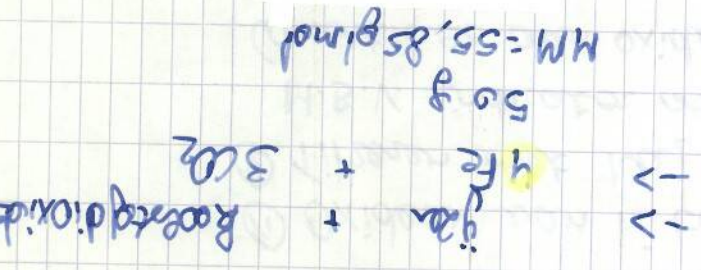 -> ijzer + Koolstofdioxid
-> 4 Fe + 3CO₂
50 g
MM = 55,85 g/mol